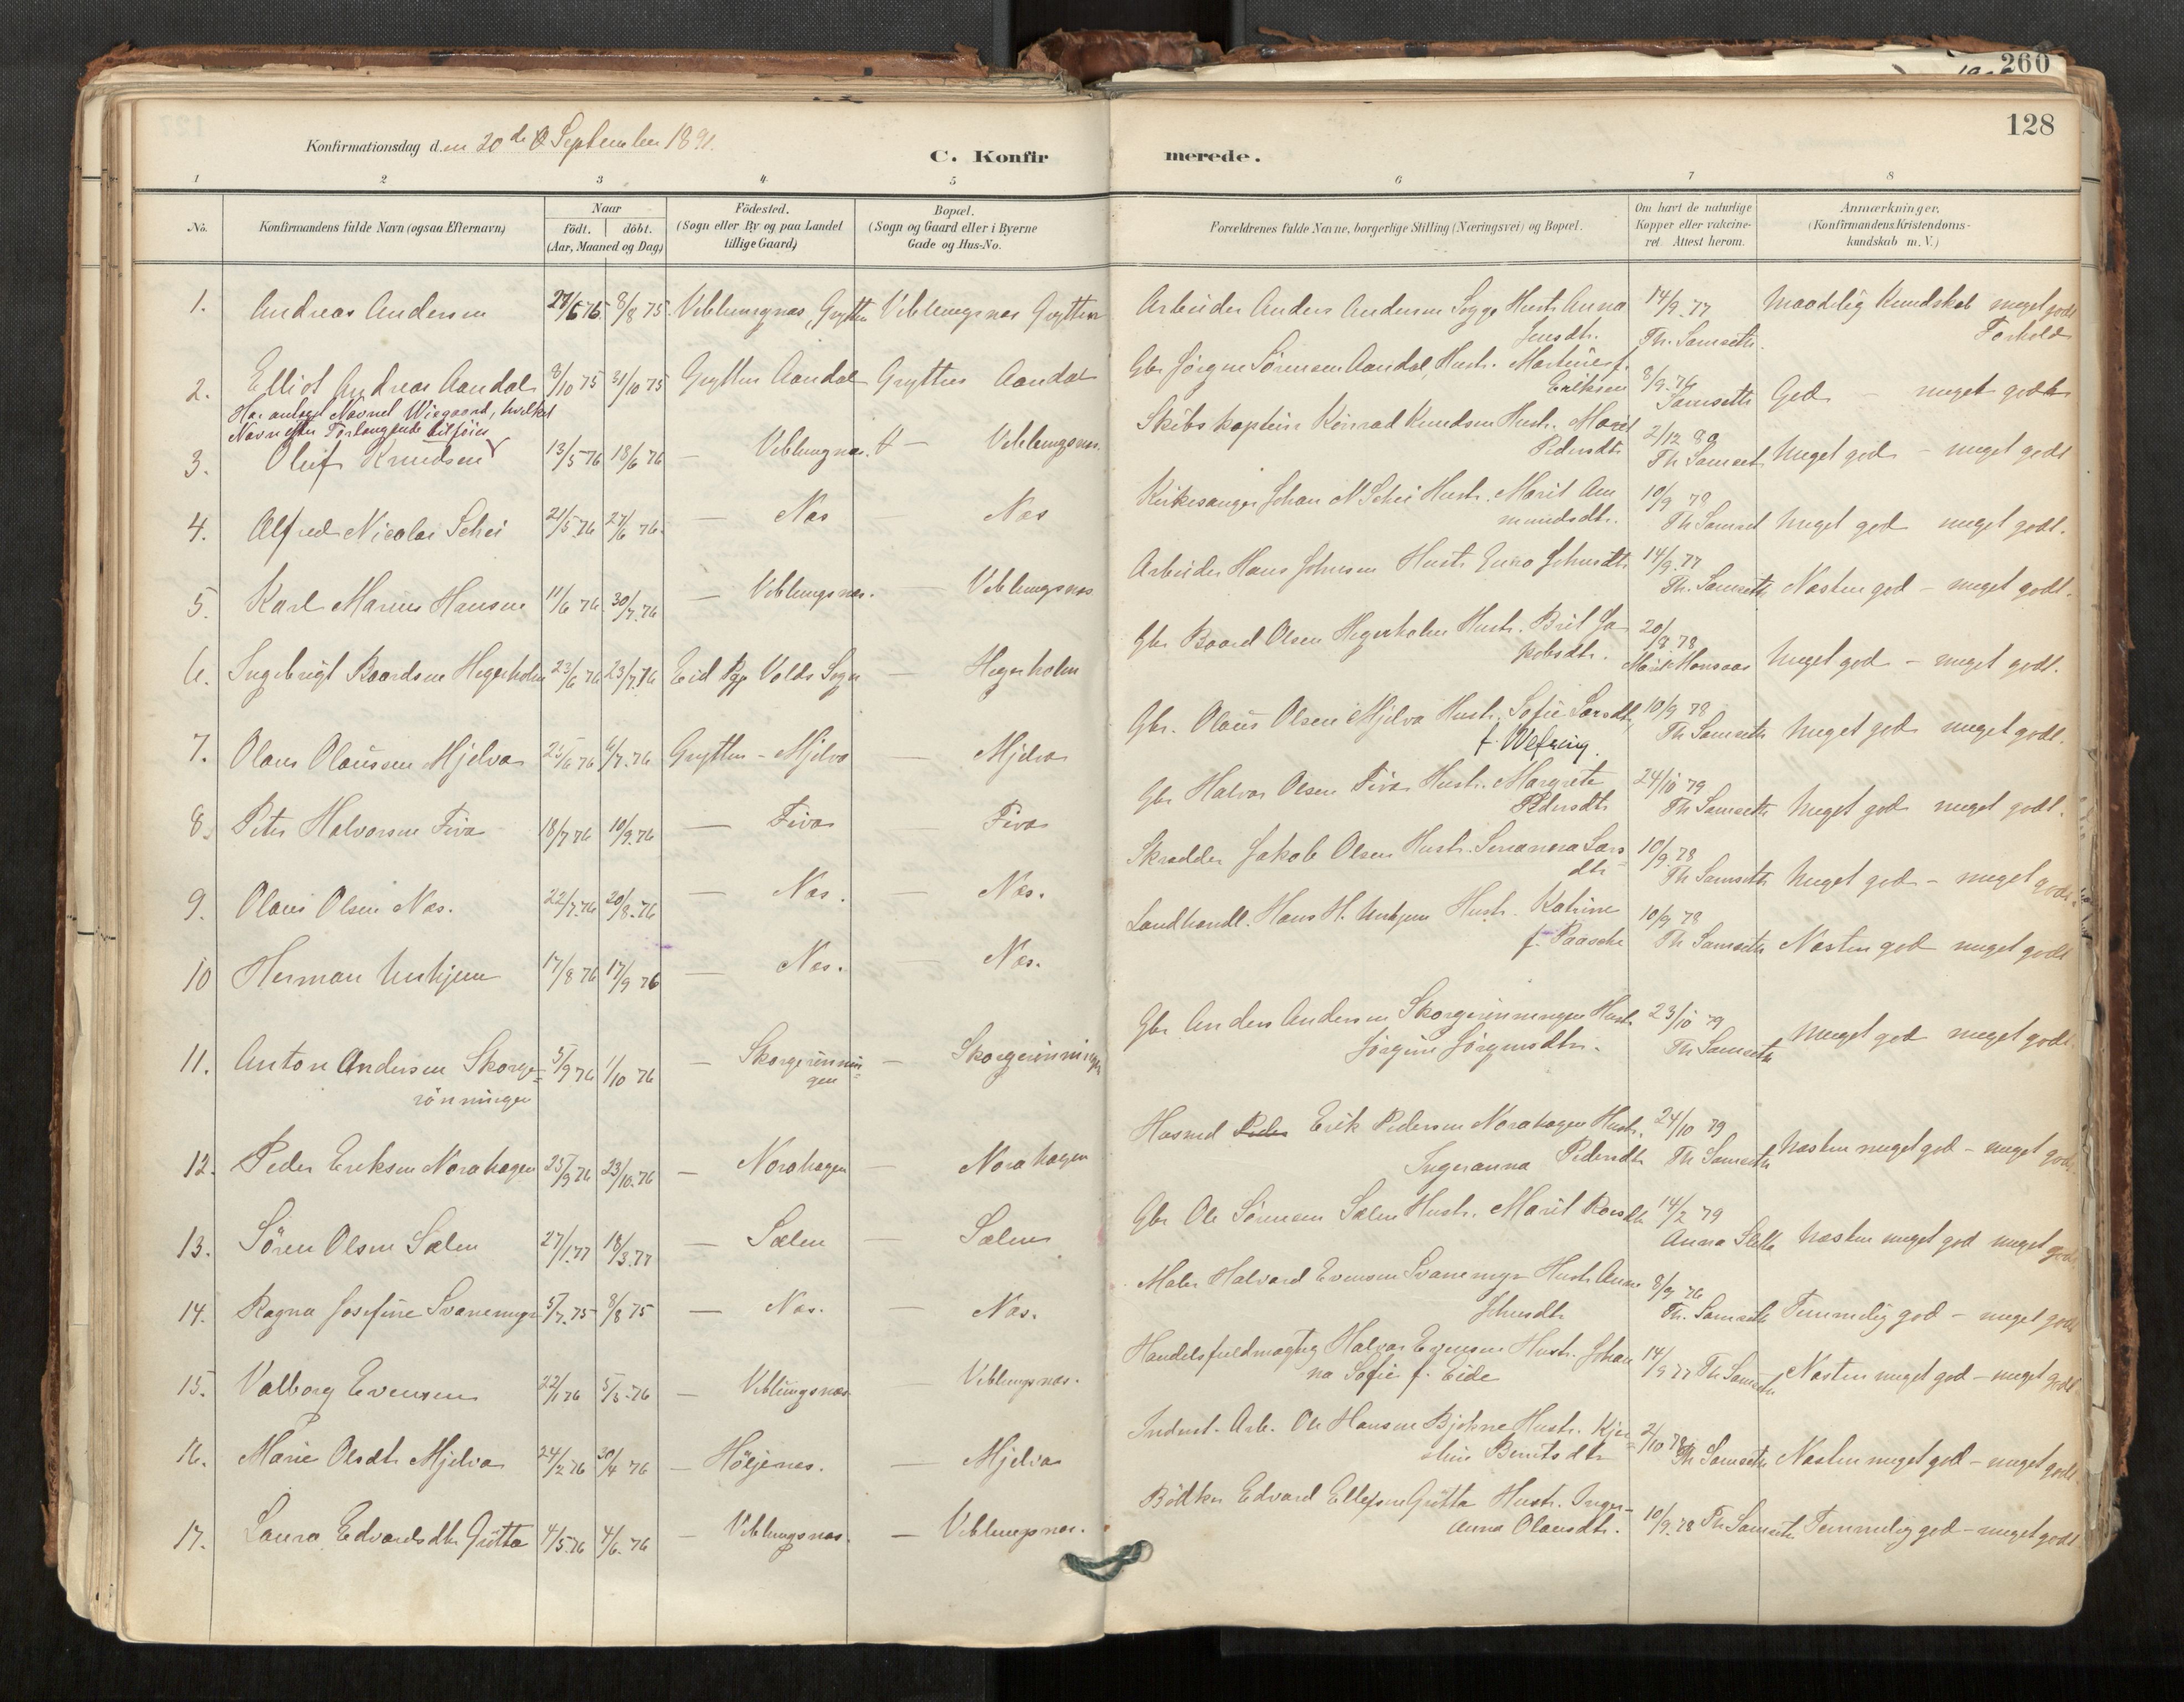 260
128
Konfirmationsdag d.en 20de September 1891.
C. Konfir
merede.
1 2 3 4 5 6 7 8
No. Konfirmandens fulde Navn (ogsaa Efternavn) Naar födt. döbt. (Aar, Maaned og Dag) Födested. (Sogn eller By og paa Landet tillige Gaard) Bopæl. (Sogn og Gaard eller i Byerne Gade og Hus-No. Forældrenes fulde Navne, borgerlige Stilling (Næringsvei) og Bopæl. Om havt de naturlige Kopper eller vakcineret. Attest herom. Anmærkninger. (Konfirmandens Kristendomskundskab m. V.)
1. Andreas Andersen 8/8 75 Veblungnæs, Grytten Veblungsnes Grytten Arbeider Anders Andersen Sogge Hustr. Anna 14/9.77 Maadelig Kundskab meget godt
Jensdtr. Th. Samseth. Forhold
2. Elliot Andreas Aandal 8/10 75 31/10 75 Grytten Aandal Grytten Aandal Gbr Jörgen Sörensen Aandal, Hustr. Martine f.
Eriksen 8/9.76 Samseth God meget godt
Har antaget Navnet Wiegaard, hvilket
Navn efter Forlangende tilföies
3. Oluf Knudsen 13/5 76 18/6 76 — Veblungnæs. — Veblungsnes. Skibskaptein Konrad Knudsen Hustr. Marit
Pedersdtr 2/12 80 Th Samset Meget god – meget godt
4. Alfred Nicolai Schei 21/5 76 27/6 76. — Næs Næs Kirkesanger Johan N Schei Hustr. Marit Am
mundsdtr. 10/9 78 Th Samset Meget god meget godt.
5. Karl Marius Hansen 11/6 76 30/7.76 — Veblungsnæs. — Veblungsnæs Arbeider Hans Johnsen Hustr. Johnsdtr 14/9.77
Th. Samseth Næsten god – meget godt.
6. Ingebrigt Baardsen Hegerholm 23/6 76 23/7.76 Eid Pgj Volds Sogn — Hegerholm Gbr Baard Olsen Hegerholm Hustr. Brit Ja
kobsdtr. 20/9.78 Meget god – meget godt.
7. Olaus Olaussen Mjelva 25/6 76 6/7.76 Grytten – Mjelva — Mjelva Gbr. Olaus Olsen Mjelva Hustr. Sofie Larsdtr, 10/9 78
f. Wefring. Th Samseth Meget god meget godt.
8. Peter Halvorsen Fiva 18/7 76 10/9.76 — Fiva Fiva Gbr Halvor Olsen Fiva Hustr. Margrete 24/10 79
Pedersdtr Th Samseth Meget god meget godt.
9. Olaus Olsen Næs. 22/7.76 20/8.76 — Næs. — Næs. Skrædder Jakob Olsen Hustr. Lars
dtr 10/9.78 Th Samseth Meget god – meget godt.
10 Herman Unhjem 17/8 76 17/9 76 — Næs. — Næs. Landhandl. Hans H. Unhjem Hustr. Katrine
f. Paasche 10/9 78 Th Samseth Næsten god meget godt
11. Anton Andersen Skorge=
rönningen 5/9 76 1/10 76 — Skorgerönnin=
gen — Skorgerönningen Gbr Anders Andersen Skorgerönningen Hustr 23/10 79
Jörgine Jörgensdtr. Th Samseth Meget god meget godt.
12. Peder Eriksen Norahagen 25/9 76 23/10.76 — Norahagen — Norahagen Husmd Peder Erik Pedersen Norahagen Hustr. 24/10 79
Ingeranna Pedersdtr Th Samseth Næsten meget god – meget godt.
13. Sören Olsen Sælen 27/1.77 18/3.77 — Sælen — Sælen Gbr Ole Sörensen Sælen Hustr. Marit 14/2 79
Anna Slette Næsten meget god meget godt
14. Ragna Josefine Svanemyr 5/7.75 8/8 75 — Næs. — Næs. Maler Halvard Evensen Svanemyr Hustr. Anne 8/9 76
Johnsdtr Th. Samseth Temmelig god – meget godt
15. Valborg Evensen 22/1 76 5/3.76 — Veblungsnæs — Veblungsnæs. Handelsfuldmægtig Halvor Evensen Hustr. Johan
na Sofie f. Eide 14/9 77 Th Samseth Næsten meget god – meget godt.
16. Marie Olsdtr Mjelva 24/2 76 30/4 76 — Höljenes. — Mjelva Indust. Arb. Ole Hansen Bjokne Hustr. Kjer
stine Berntsdtr 2/10 78 Th Samseth Næsten meget god – meget godt.
17. Laura Edvardsdtr Grötta 4/5.76 4/6.76 — Veblungsnæs. — Veblungsnæs. Bödker Edvard Ellefsen Grötta Hustr. Inger-
anna Olausdtr. 10/9.78 Th Samseth Temmelig god – meget godt